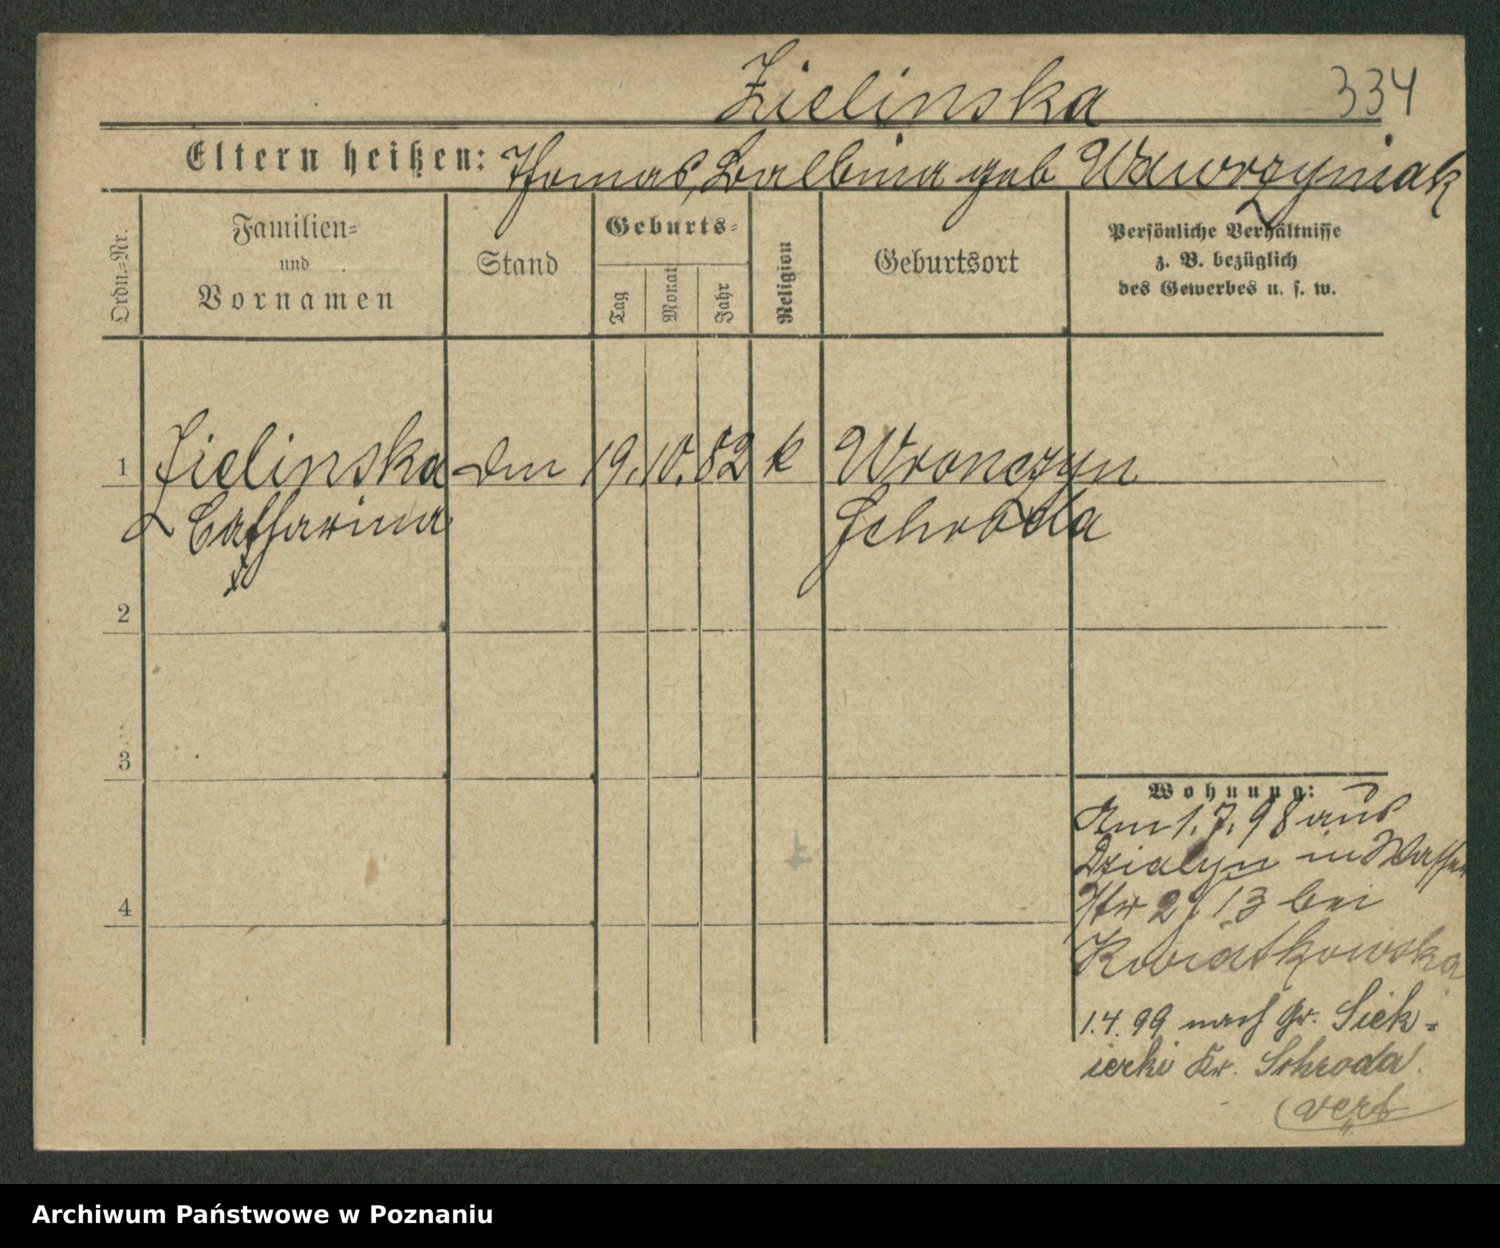 Zielinska 334
Eltern heißen: Thomas, Balbina geb Wawrzyniak
Ordn.=Nr.
Familien=
und
Vornamen
Stand
Geburts=
Tag
Monat
Jahr
Religion
Geburtsort
Persönliche Verhältnisse
z. B. bezüglich
des Gewerbes u. s. w.
1 Zielinska 19. 10. 82 k Wronczyn
Catharina Schroda
2
3
4
Wohnung:
Am 1. 7. 98 aus
Dzialyn in Wasser
13 bei
Kwiatkowska
1. 4. 99 nach Gr. Siek-
ierki Kr. Schroda.
Archiwum Państwowe w Poznaniu